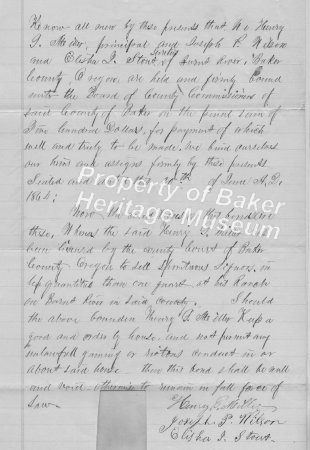 Know all men by these presents that We Henry
G. Miller, principal and Joseph P. Wilson
and Elisha I. Stout, Sureties of Burnt River, Baker
County, Oregon, are held and firmly bound
unto the Board of County Commissioners of
said County of Baker in the penal sum of
Five Hundred Dollars, for payment of which
well and truly to be made, we bind ourselves
our heirs and assigns firmly by these presents
Sealed and this the 20th of June A.D.
1864:
Now the of this bond are
these, Whereas the said Henry G.
been licensed by the county Court of Baker
County Oregon to sell Spiritous Liquors, in
less quantities than one quart, at his Ranch
on Burnt River in said County. Should
the above bounden Henry G. Miller Keep a
good and orderly house, and not permit any
unlawfull gaming or riotous conduct in or
about said house - then this bond shall be null
and void - otherwise to remain in full force of
Law.
Henry G. Miller
Joseph P. Wilson
Elisha I. Stout.
Property of Baker
Heritage Museum